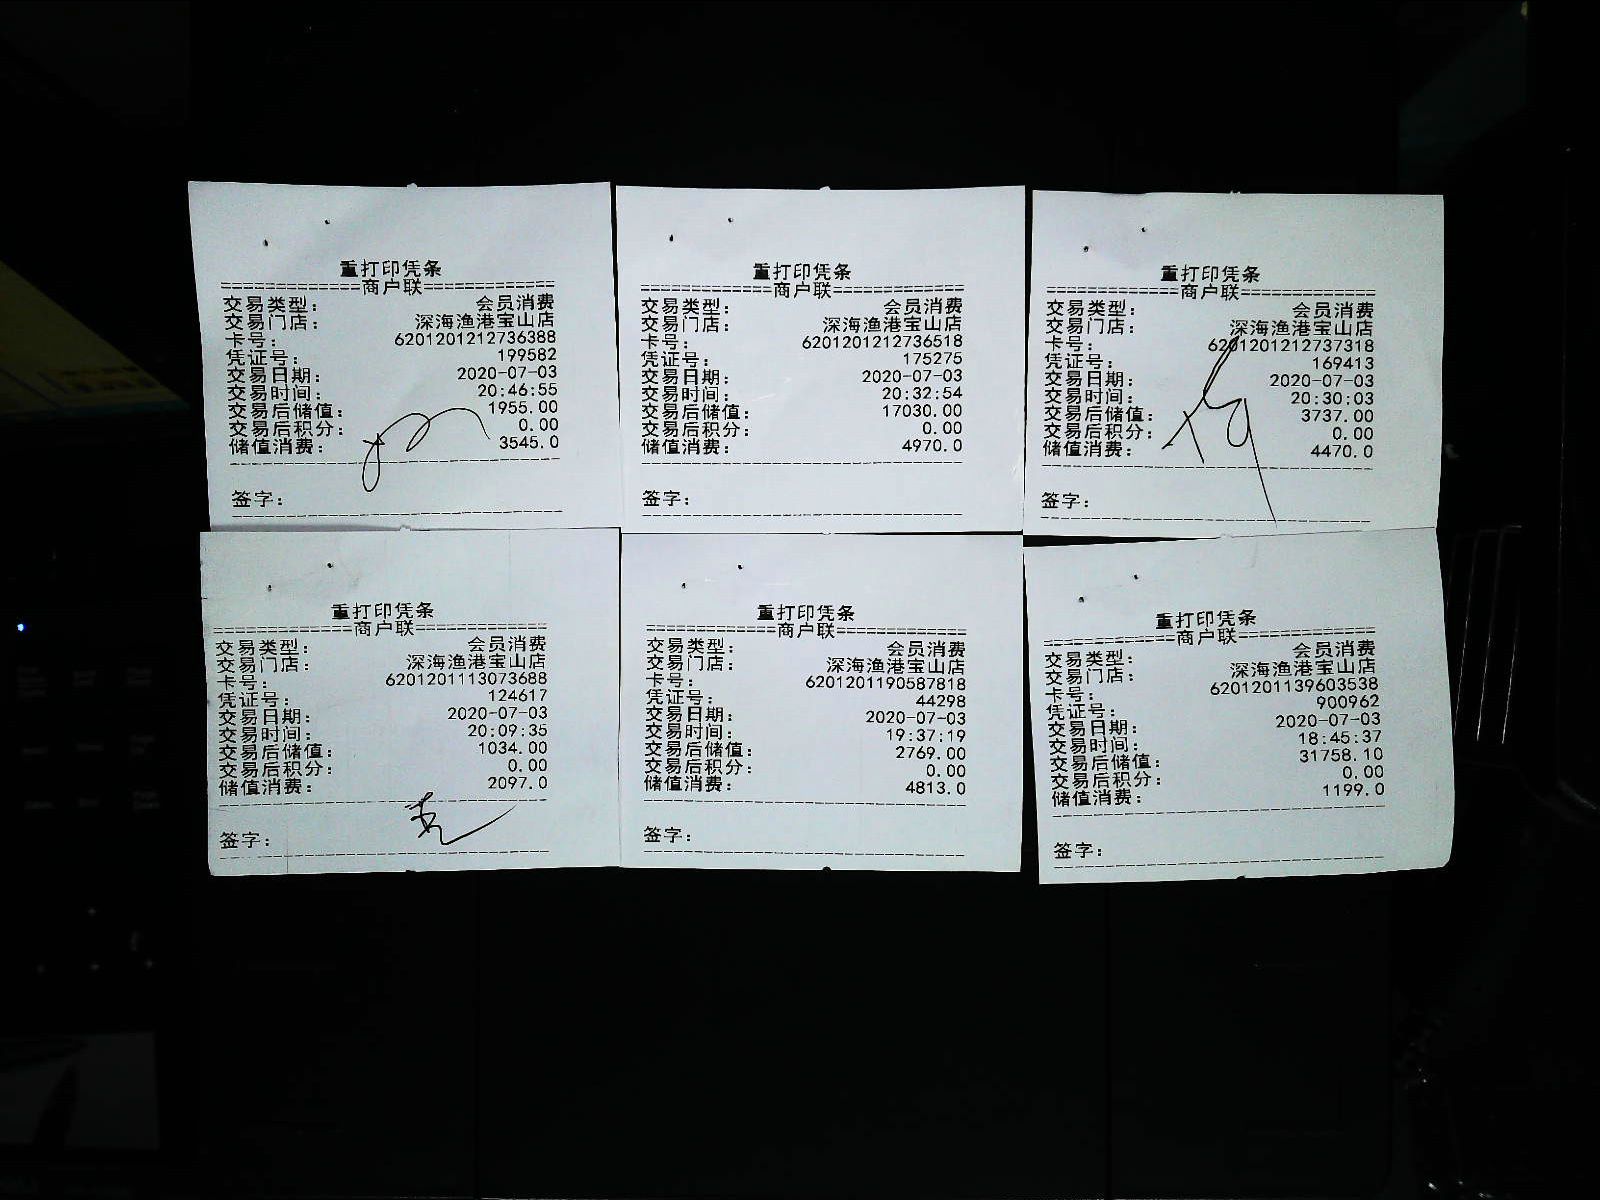 重打印凭条
=============商户联=============
交易类型： 会员消费
交易门店： 深海渔港宝山店
卡号： 6201201212736388
凭证号： 199582
交易日期： 2020-07-03
交易时间： 20:46:55
交易后储值： 1955.00
交易后积分： 0.00
储值消费： 3545.0
签字：
重打印凭条
=============商户联=============
交易类型： 会员消费
交易门店： 深海渔港宝山店
卡号： 6201201212736518
凭证号： 175275
交易日期： 2020-07-03
交易时间： 20:32:54
交易后储值： 17030.00
交易后积分： 0.00
储值消费： 4970.0
签字：
重打印凭条
=============商户联=============
交易类型： 会员消费
交易门店： 深海渔港宝山店
卡号： 6201201212737318
凭证号： 169413
交易日期： 2020-07-03
交易时间： 20:30:03
交易后储值： 3737.00
交易后积分： 0.00
储值消费： 4470.0
签字：
重打印凭条
=============商户联=============
交易类型： 会员消费
交易门店： 深海渔港宝山店
卡号： 6201201113073688
凭证号： 124617
交易日期： 2020-07-03
交易时间： 20:09:35
交易后储值： 1034.00
交易后积分： 0.00
储值消费： 2097.0
签字：
重打印凭条
=============商户联=============
交易类型： 会员消费
交易门店： 深海渔港宝山店
卡号： 6201201190587818
凭证号： 44298
交易日期： 2020-07-03
交易时间： 19:37:19
交易后储值： 2769.00
交易后积分： 0.00
储值消费： 4813.0
签字：
重打印凭条
=============商户联=============
交易类型： 会员消费
交易门店： 深海渔港宝山店
卡号： 6201201139603538
凭证号： 900962
交易日期： 2020-07-03
交易时间： 18:45:37
交易后储值： 31758.10
交易后积分： 0.00
储值消费： 1199.0
签字：